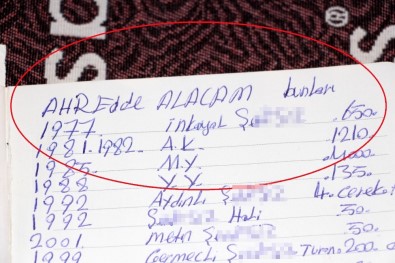 AHREdde ALACAM bunları
1977. inkayal Ş .650.
1981.1982. A.K. 1210.
1985. M.Y.
1988 Y.Y. .135.
1992 Aydınlı Ş
1992 Hali 50.
2001 metn Ş 50.
1999 Germeçli Ş 200